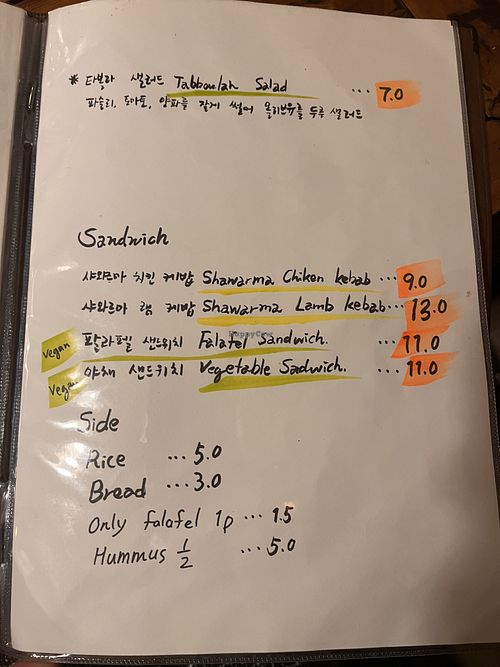 * 타볼라 샐러드 Tabboulah Salad ... 7.0
파슬리, 토마토, 양파를 잘게 썰어 올리브유를 두루 샐러드
Sandwich
샤와르마 치킨 케밥 Shawarma Chiken kebab ... 9.0
샤와르마 램 케밥 Shawarma Lamb kebab... 13.0
Vegan 팔라펠 샌드위치 Falafel Sandwich. ... 11.0
Vegan 야채 샌드위치 Vegetable Sadwich. ... 11.0
Side
Rice ... 5.0
Bread ... 3.0
Only falafel 1p ... 1.5
Hummus 1/2 ... 5.0